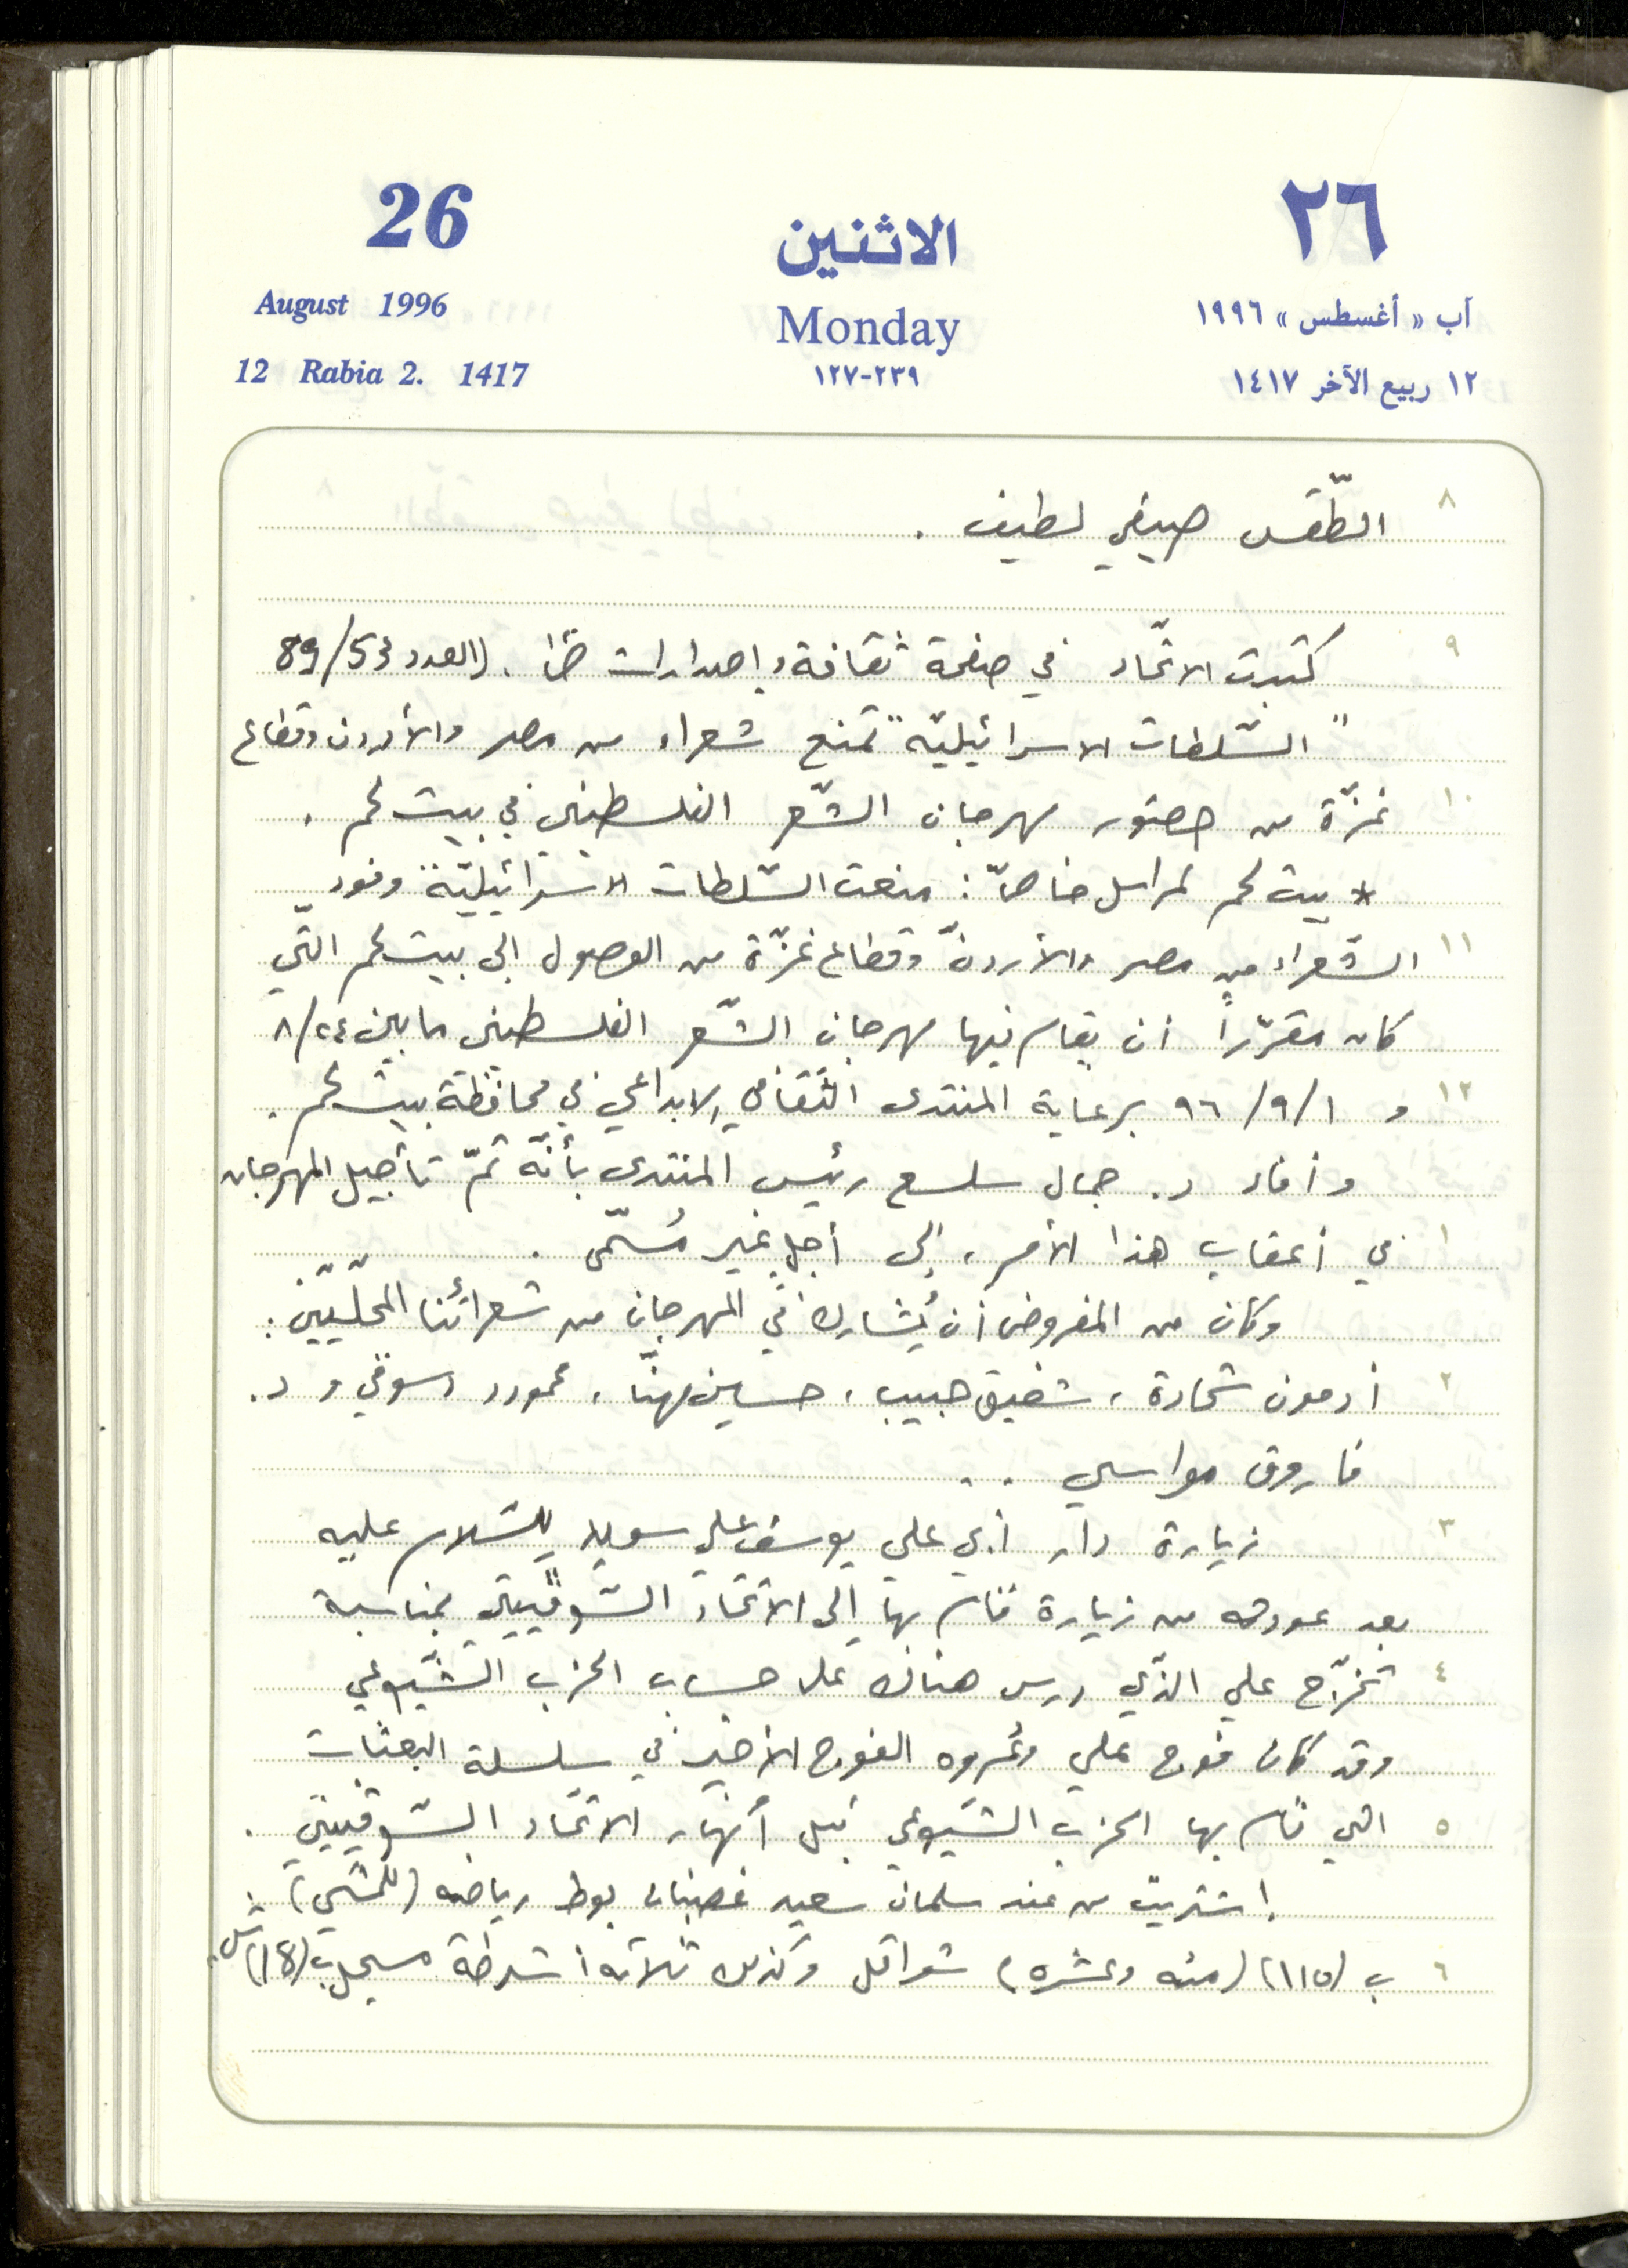 26
الاثنين
٢٦
August 1996
Monday
آب « أغسطس » ١٩٩٦
12 Rabia 2. 1417
٢٣٩-١٢٧
١٢ ربيع الآخر ١٤١٧
٨ الطّقس صيفي لطيف .
٩ كتبت الاتّحاد في صفحة ثقافة وإصدارات (العدد 89/53
"السّلطات الاسرائيليّة" تمنع شعراء من مصر والأردن وقطاع
١٠ غزّة من حضور مهرجان الشّعر الفلسطيني في بيت لحم .
* بيت لحم لمراسل خاصّ : منعت السّلطات الاسرائيليّة وفود
١١ الشّعراء من مصر والأردنّ وقطاع غزّة من الوصول الى بيت لحم التّي
كان مقرّراً أن يقام فيها مهرجان الشّعر الفلسطيني ما بين ٨/٢٤
١٢ و ٩٦/٩/١ برعاية المنتدى الثّقافي الابداعي في محافظة بيت لحم .
وأفاد د. جمال سلسع رئيس المنتدى بأنّه تمّ تأجيل المهرجان
١ في أعقاب هذا الأمر ، إلى أجل غير مُسمّى .
وكان من المفروض أن يُشارك في المهرجان من شعرائنا المحلّيّين :
٢ أدمون شحادة ، شفيق حبيب ، حسين مهنّا ، محمود دسوقي و د.
فاروق مواسي . .
٣ زيارة دار أبي علي يوسف علي سويد للسّلام عليه
بعد عودته من زيارة قام بها إلى الاتّحاد السّوڤييتي بمناسبة
٤ تخرّج علي الذّي درس هناك على حساب الحزب الشّيوعي
وقد كان فوج علي وعُروه الفوج الأخير في سلسلة البعثات
٥ التي قام بها الحزب الشّيوعي قبل أنهيار الاتّحاد السّوڤييتي .
اشتريت من عند سلمان سعيد غضبان بوط رياضه (للمشي) .
٦ ب (١١٥) (مئه وعشره) شواقل وكذلك ثلاثه أشرطة مسجل ب (١٨) ش .